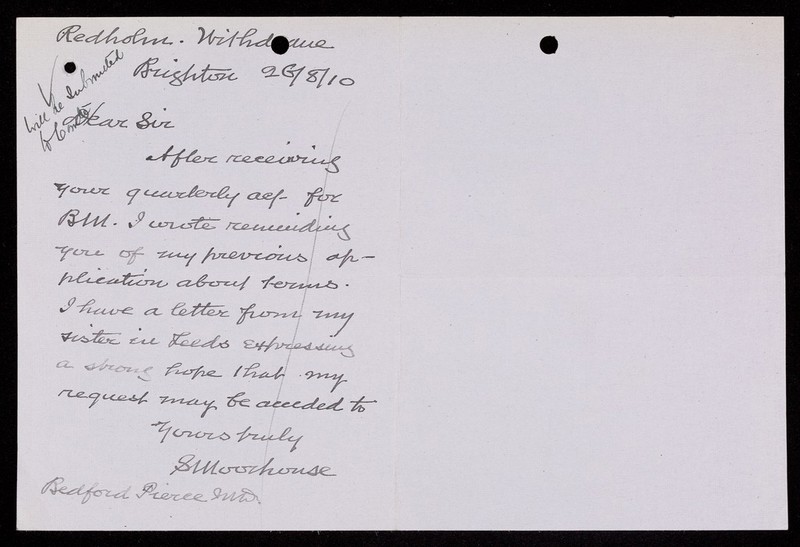 Redholm. Withdeane
Brighton 26/8/10
will be submitted
to Comtee
Dear Sir
After receiving
your quarterly acf- for
BM. I wrote reminding
you of my previous ap-
plication about terms.
I have a letter from my
sister in Leeds expressing
a strong hope that my
request may be acceded to
Yours truly
SMoorhouse
Bedford Pierce MD.